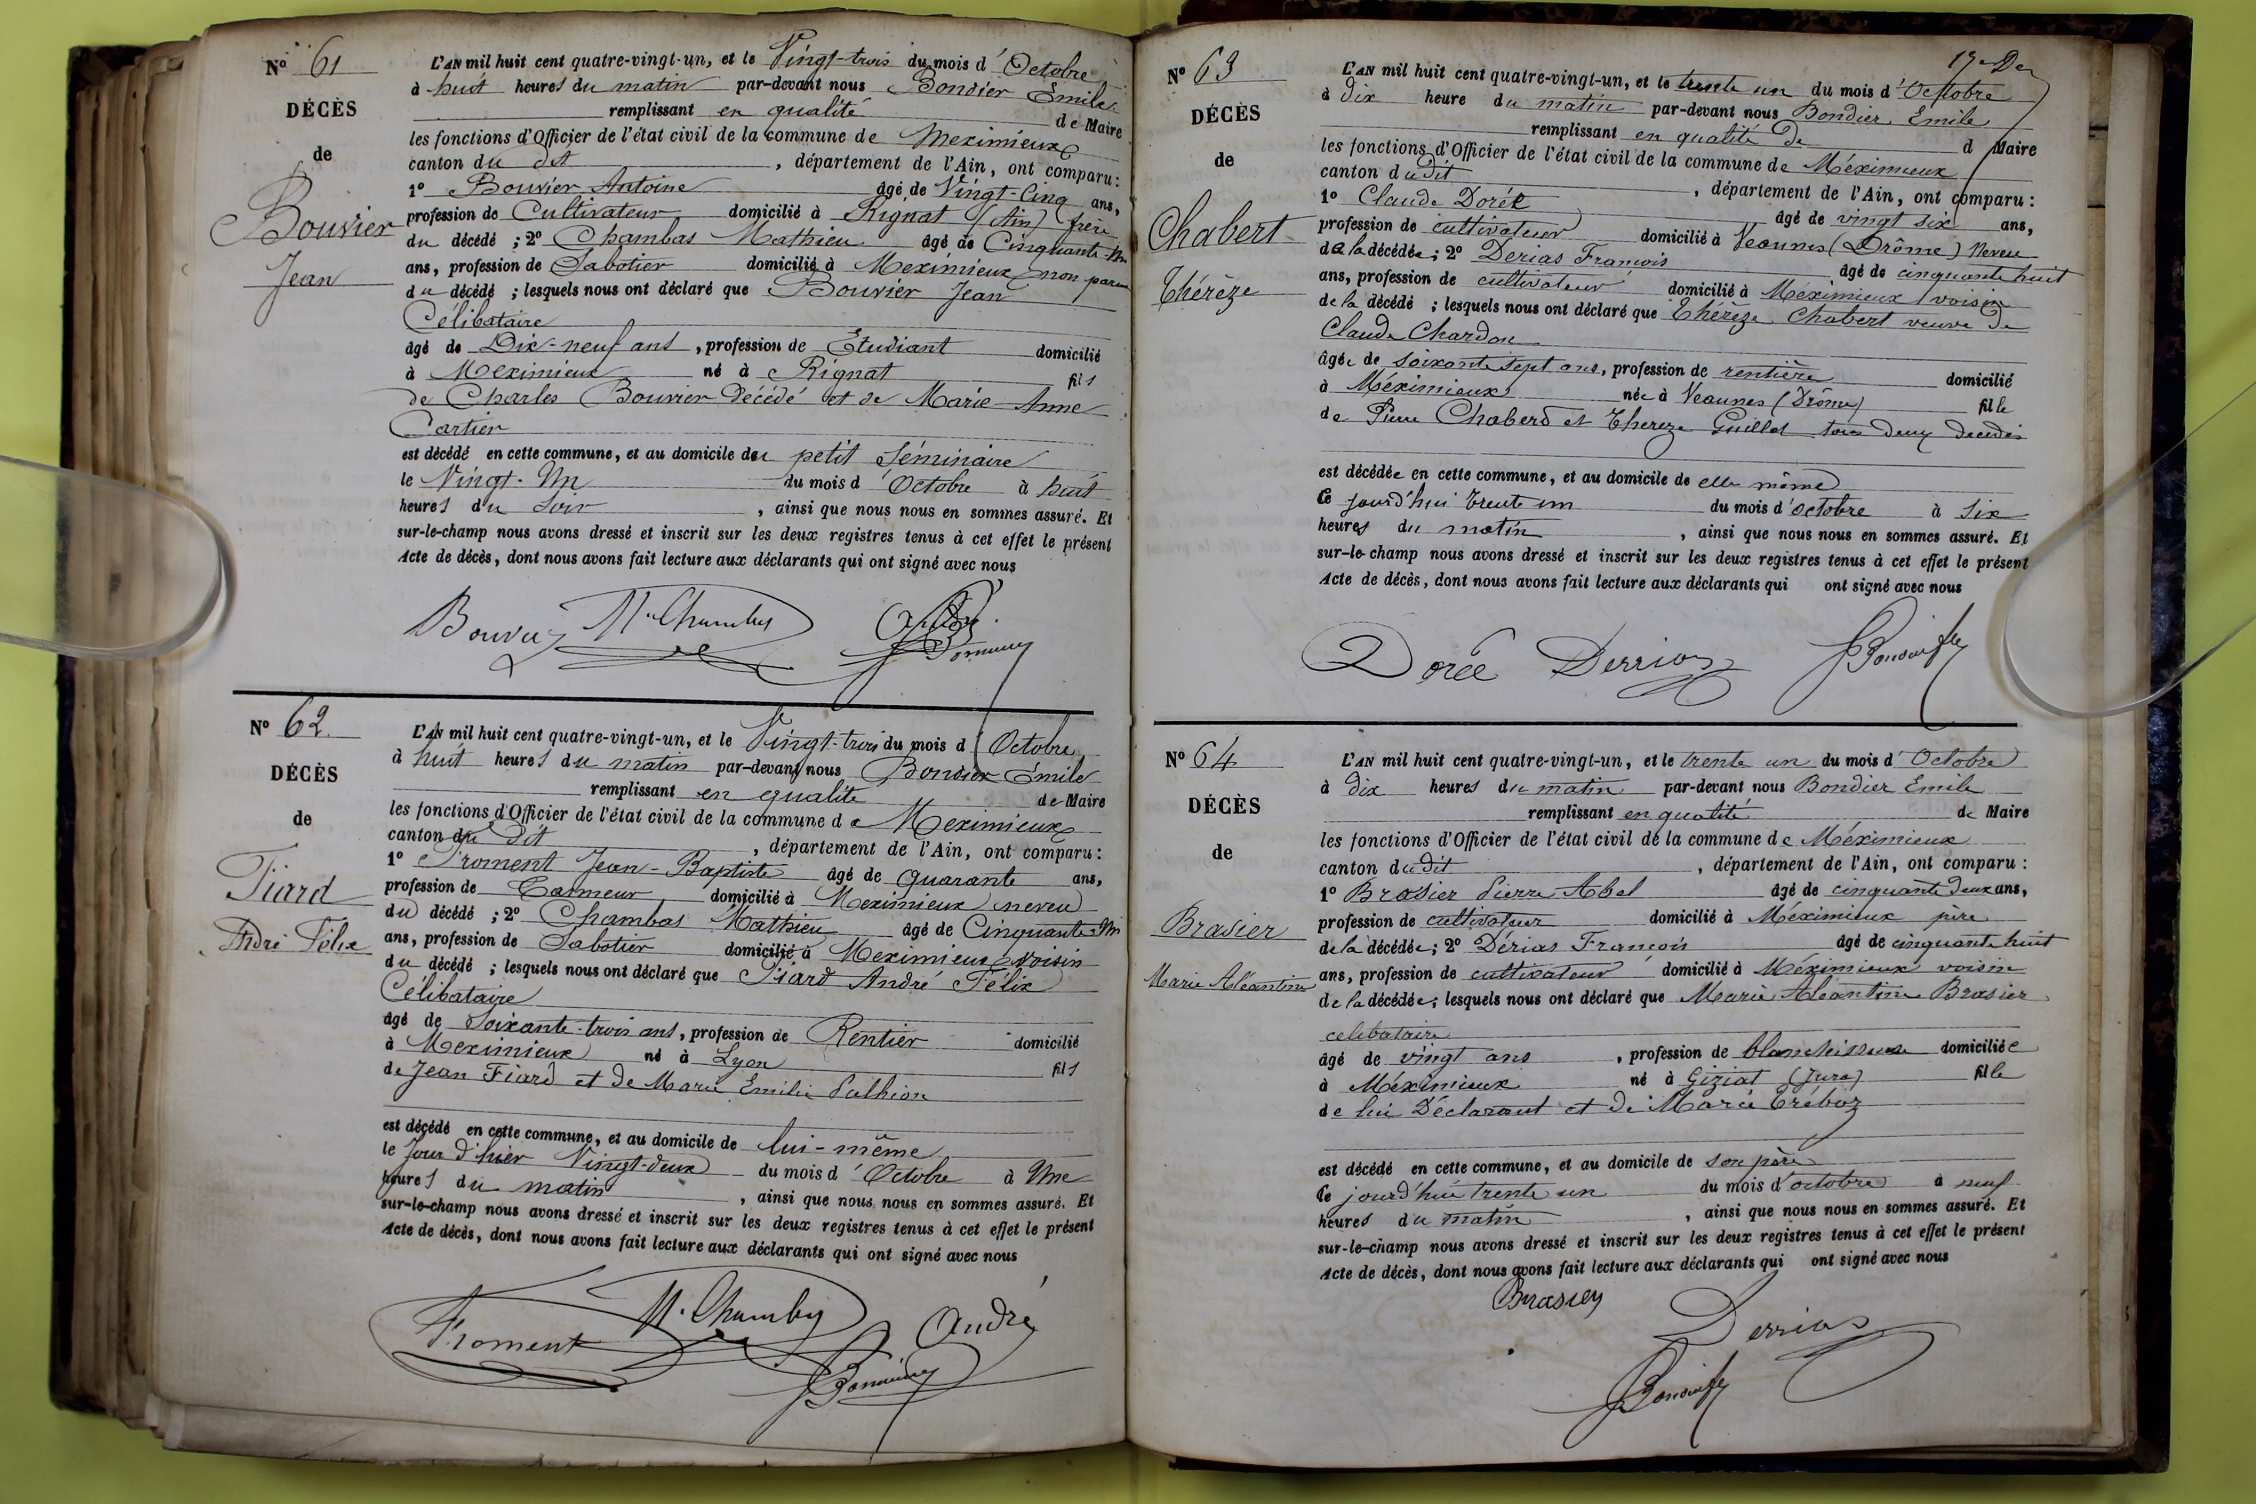 Nº 61
DÉCÈS
de
Bouvier
Jean
L'AN mil huit cent quatre-vingt-un, et le Vingt-trois du mois d'Octobre
à huit heures du matin par-devant nous Bondier Émile
remplissant en qualité de Maire
les fonctions d'Officier de l'état civil de la commune de Meximieux
canton du dit , département de l'Ain, ont comparu :
1º Bouvier Antoine âgé de Vingt-Cinq ans,
profession de Cultivateur domicilié à Rignat (Ain) frère
du décédé ; 2º Chambas Mathieu âgé de Cinquante-Un
ans, profession de Sabotier domicilié à Meximieux non parent
du décédé ; lesquels nous ont déclaré que Bouvier Jean
Célibataire
âgé de Dix-neuf ans , profession de Étudiant domicilié
à Meximieux né à Rignat fils
de Charles Bouvier décédé et de Marie Anne
Cartier
est décédé en cette commune, et au domicile du petit Séminaire
le Vingt-Un du mois d'Octobre à huit
heures du soir , ainsi que nous nous en sommes assuré. Et
sur-le-champ nous avons dressé et inscrit sur les deux registres tenus à cet effet le présent
Acte de décès, dont nous avons fait lecture aux déclarants qui ont signé avec nous
Bouvier M. Chambas
Nº 62
DÉCÈS
de
Fiard
André Félix
L'AN mil huit cent quatre-vingt-un, et le Vingt-trois du mois d'Octobre
à huit heures du matin par-devant nous Bondier Émile
remplissant en qualité de Maire
les fonctions d'Officier de l'état civil de la commune de Meximieux
canton du dit , département de l'Ain, ont comparu :
1º Froment Jean-Baptiste âgé de quarante ans,
profession de Tanneur domicilié à Meximieux neveu
du décédé ; 2º Chambas Mathieu âgé de Cinquante-Un
ans, profession de Sabotier domicilié à Meximieux voisin
du décédé ; lesquels nous ont déclaré que Fiard André Félix
Célibataire
âgé de Soixante-trois ans, profession de Rentier domicilié
à Meximieux né à Lyon fils
de Jean Fiard et de Marie Emilie Palhion
est décédé en cette commune, et au domicile de lui-même
le Jour d'hier Vingt-deux du mois d'Octobre à Une
heures du matin , ainsi que nous nous en sommes assuré. Et
sur-le-champ nous avons dressé et inscrit sur les deux registres tenus à cet effet le présent
Acte de décès, dont nous avons fait lecture aux déclarants qui ont signé avec nous
Froment M. Chambas André
Nº 63
DÉCÈS
de
Chabert
Thérèze
L'AN mil huit cent quatre-vingt-un, et le trente un du mois d'Octobre
à dix heure du matin par-devant nous Bondier Emile
remplissant en qualité de d Maire
les fonctions d'Officier de l'état civil de la commune de Méximieux
canton dudit , département de l'Ain, ont comparu :
1º Claude Dorée âgé de vingt six ans,
profession de cultivateur domicilié à Veaunes (Drôme) Neveu
de la décédée ; 2º Derias François âgé de cinquante huit
ans, profession de cultivateur domicilié à Méximieux voisin
de la décédé ; lesquels nous ont déclaré que Thérèze Chabert veuve de
Claude Chardon
âgée de soixante sept ans, profession de rentière domicilié
à Méximieux née à Veaunes (Drôme) fille
de Pierre Chaberd et Thereze Guillot tous deux decedés
est décédée en cette commune, et au domicile de elle même
Ce jourd'hui trente un du mois d'octobre à six
heures du matin , ainsi que nous nous en sommes assuré. Et
sur-le-champ nous avons dressé et inscrit sur les deux registres tenus à cet effet le présent
Acte de décès, dont nous avons fait lecture aux déclarants qui ont signé avec nous
Dorée Derrias
Nº 64
DÉCÈS
de
Brasier
Marie Aléantine
L'AN mil huit cent quatre-vingt-un, et le trente un du mois d'Octobre
à dix heures du matin par-devant nous Bondier Emile
remplissant en qualité de Maire
les fonctions d'Officier de l'état civil de la commune de Méximieux
canton dudit , département de l'Ain, ont comparu :
1º Brasier Pierre Abel âgé de cinquante deux ans,
profession de cultivateur domicilié à Méximieux père
de la décédée ; 2º Dérias François âgé de cinquante huit
ans, profession de cultivateur domicilié à Méximieux voisin
de la décédée ; lesquels nous ont déclaré que Marie Aléantine Brasier
celibataire
âgé de vingt ans , profession de blanchisseuse domiciliée
à Méximieux né à Giziat (Jura) fille
de lui Déclarant et de Marie Tréboz
est décédé en cette commune, et au domicile de son père
Ce jourd'hui trente un du mois d'octobre à neuf
heures du matin , ainsi que nous nous en sommes assuré. Et
sur-le-champ nous avons dressé et inscrit sur les deux registres tenus à cet effet le présent
Acte de décès, dont nous avons fait lecture aux déclarants qui ont signé avec nous
Brasier
Derrias